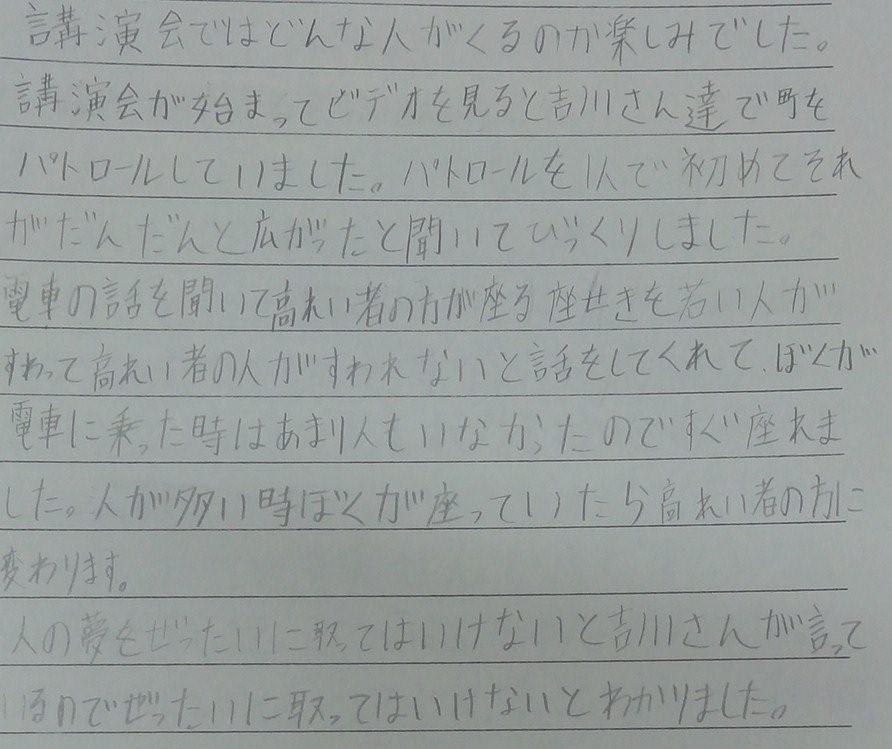 講演会ではどんな人がくるのか楽しみでした。
講演会が始まってビデオを見ると吉川さん達で町を
パトロールしていました。パトロールを1人で初めてそれ
がだんだんと広がったと聞いてびっくりしました。
電車の話を聞いて高れい者の方が座る座せきを若い人が
すわって高れい者の人がすわれないと話をしてくれて、ぼくが
電車に乗った時はあまり人もいなかったのですぐ座れま
した。人が多い時ぼくが座っていたら高れい者の方に
変わります。
人の夢をぜったいに取ってはいけないと吉川さんが言って
いるのでぜったいに取ってはいけないとわかりました。